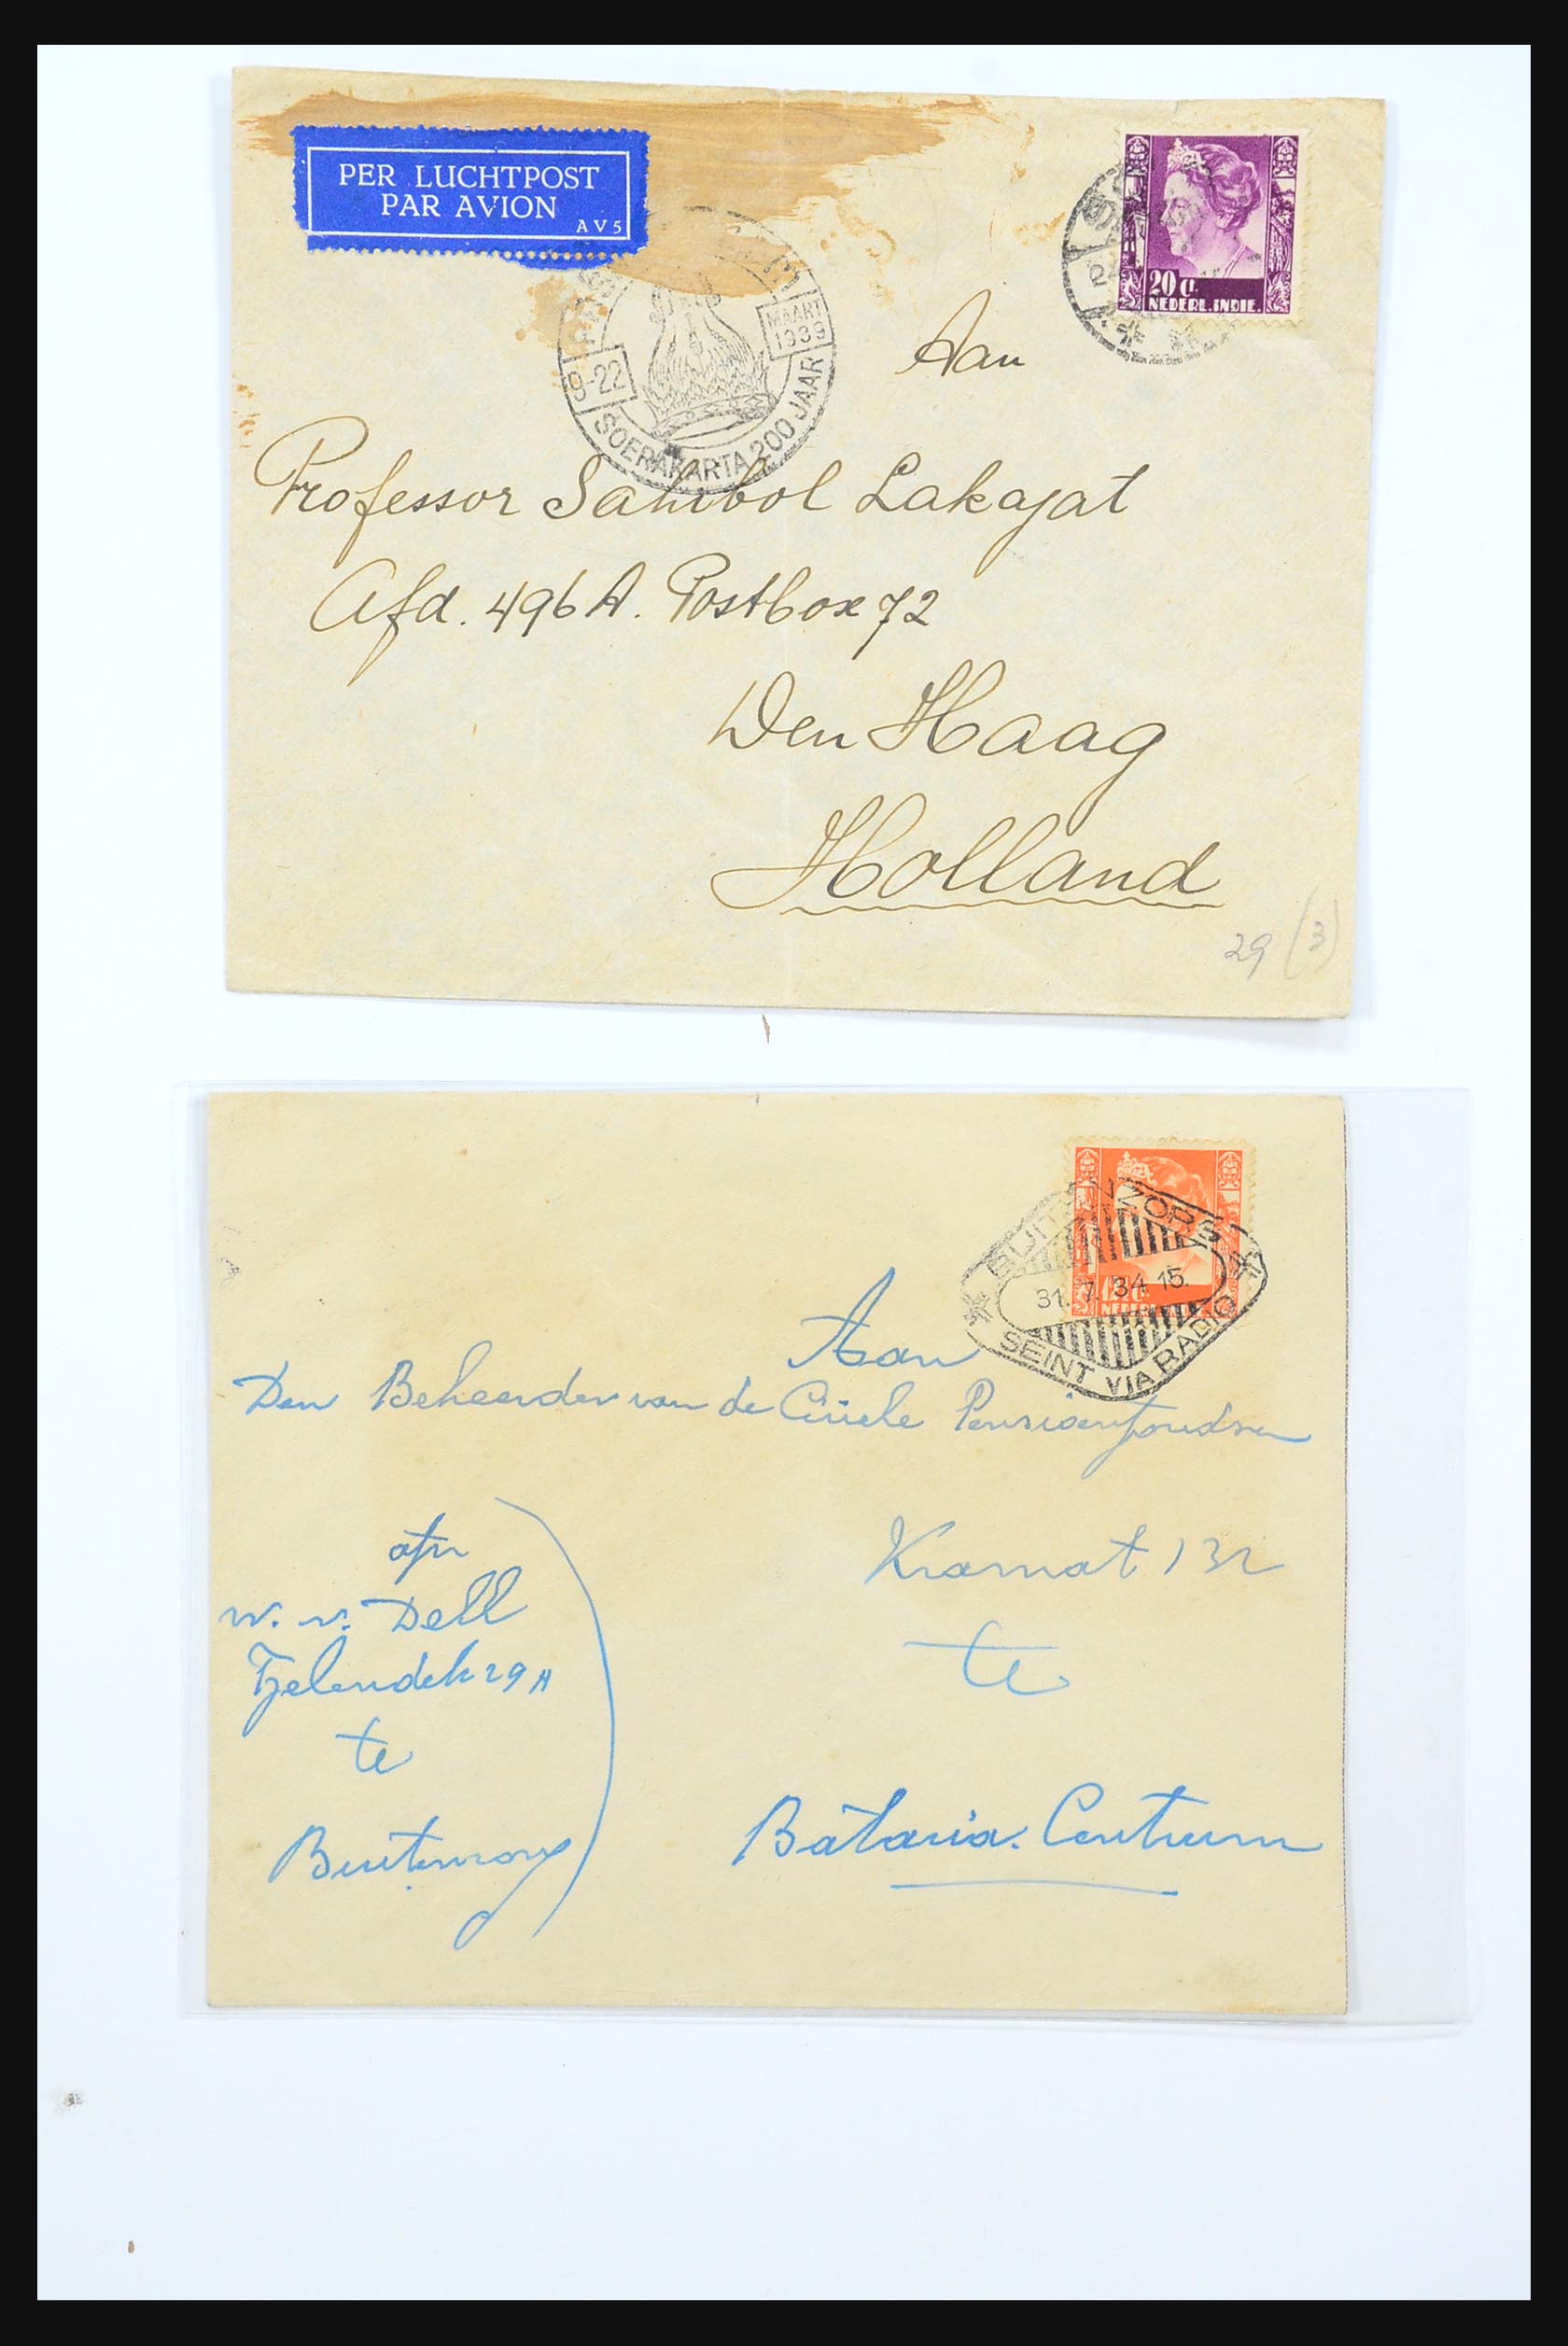 PER LUCHTPOST
PAR AVION
AV5
20 ct.
NEDERL. INDIE.
9-22
MAART
1939
SOERAKARTA 200 JAAR
Aan
Professor Sahibol Lakajat
Afd. 496 A. Postbox 72
Den Haag
Holland
29 (3)
BUITENZORG
31. 7. 34 15.
SEINT VIA RADIO
Aan
Den Beheerder van de Civiele Pensioenfondsen
Kramat 132
te
Batavia. Centrum
afn
w. v. Dell
29 A
te
Buitenzorg